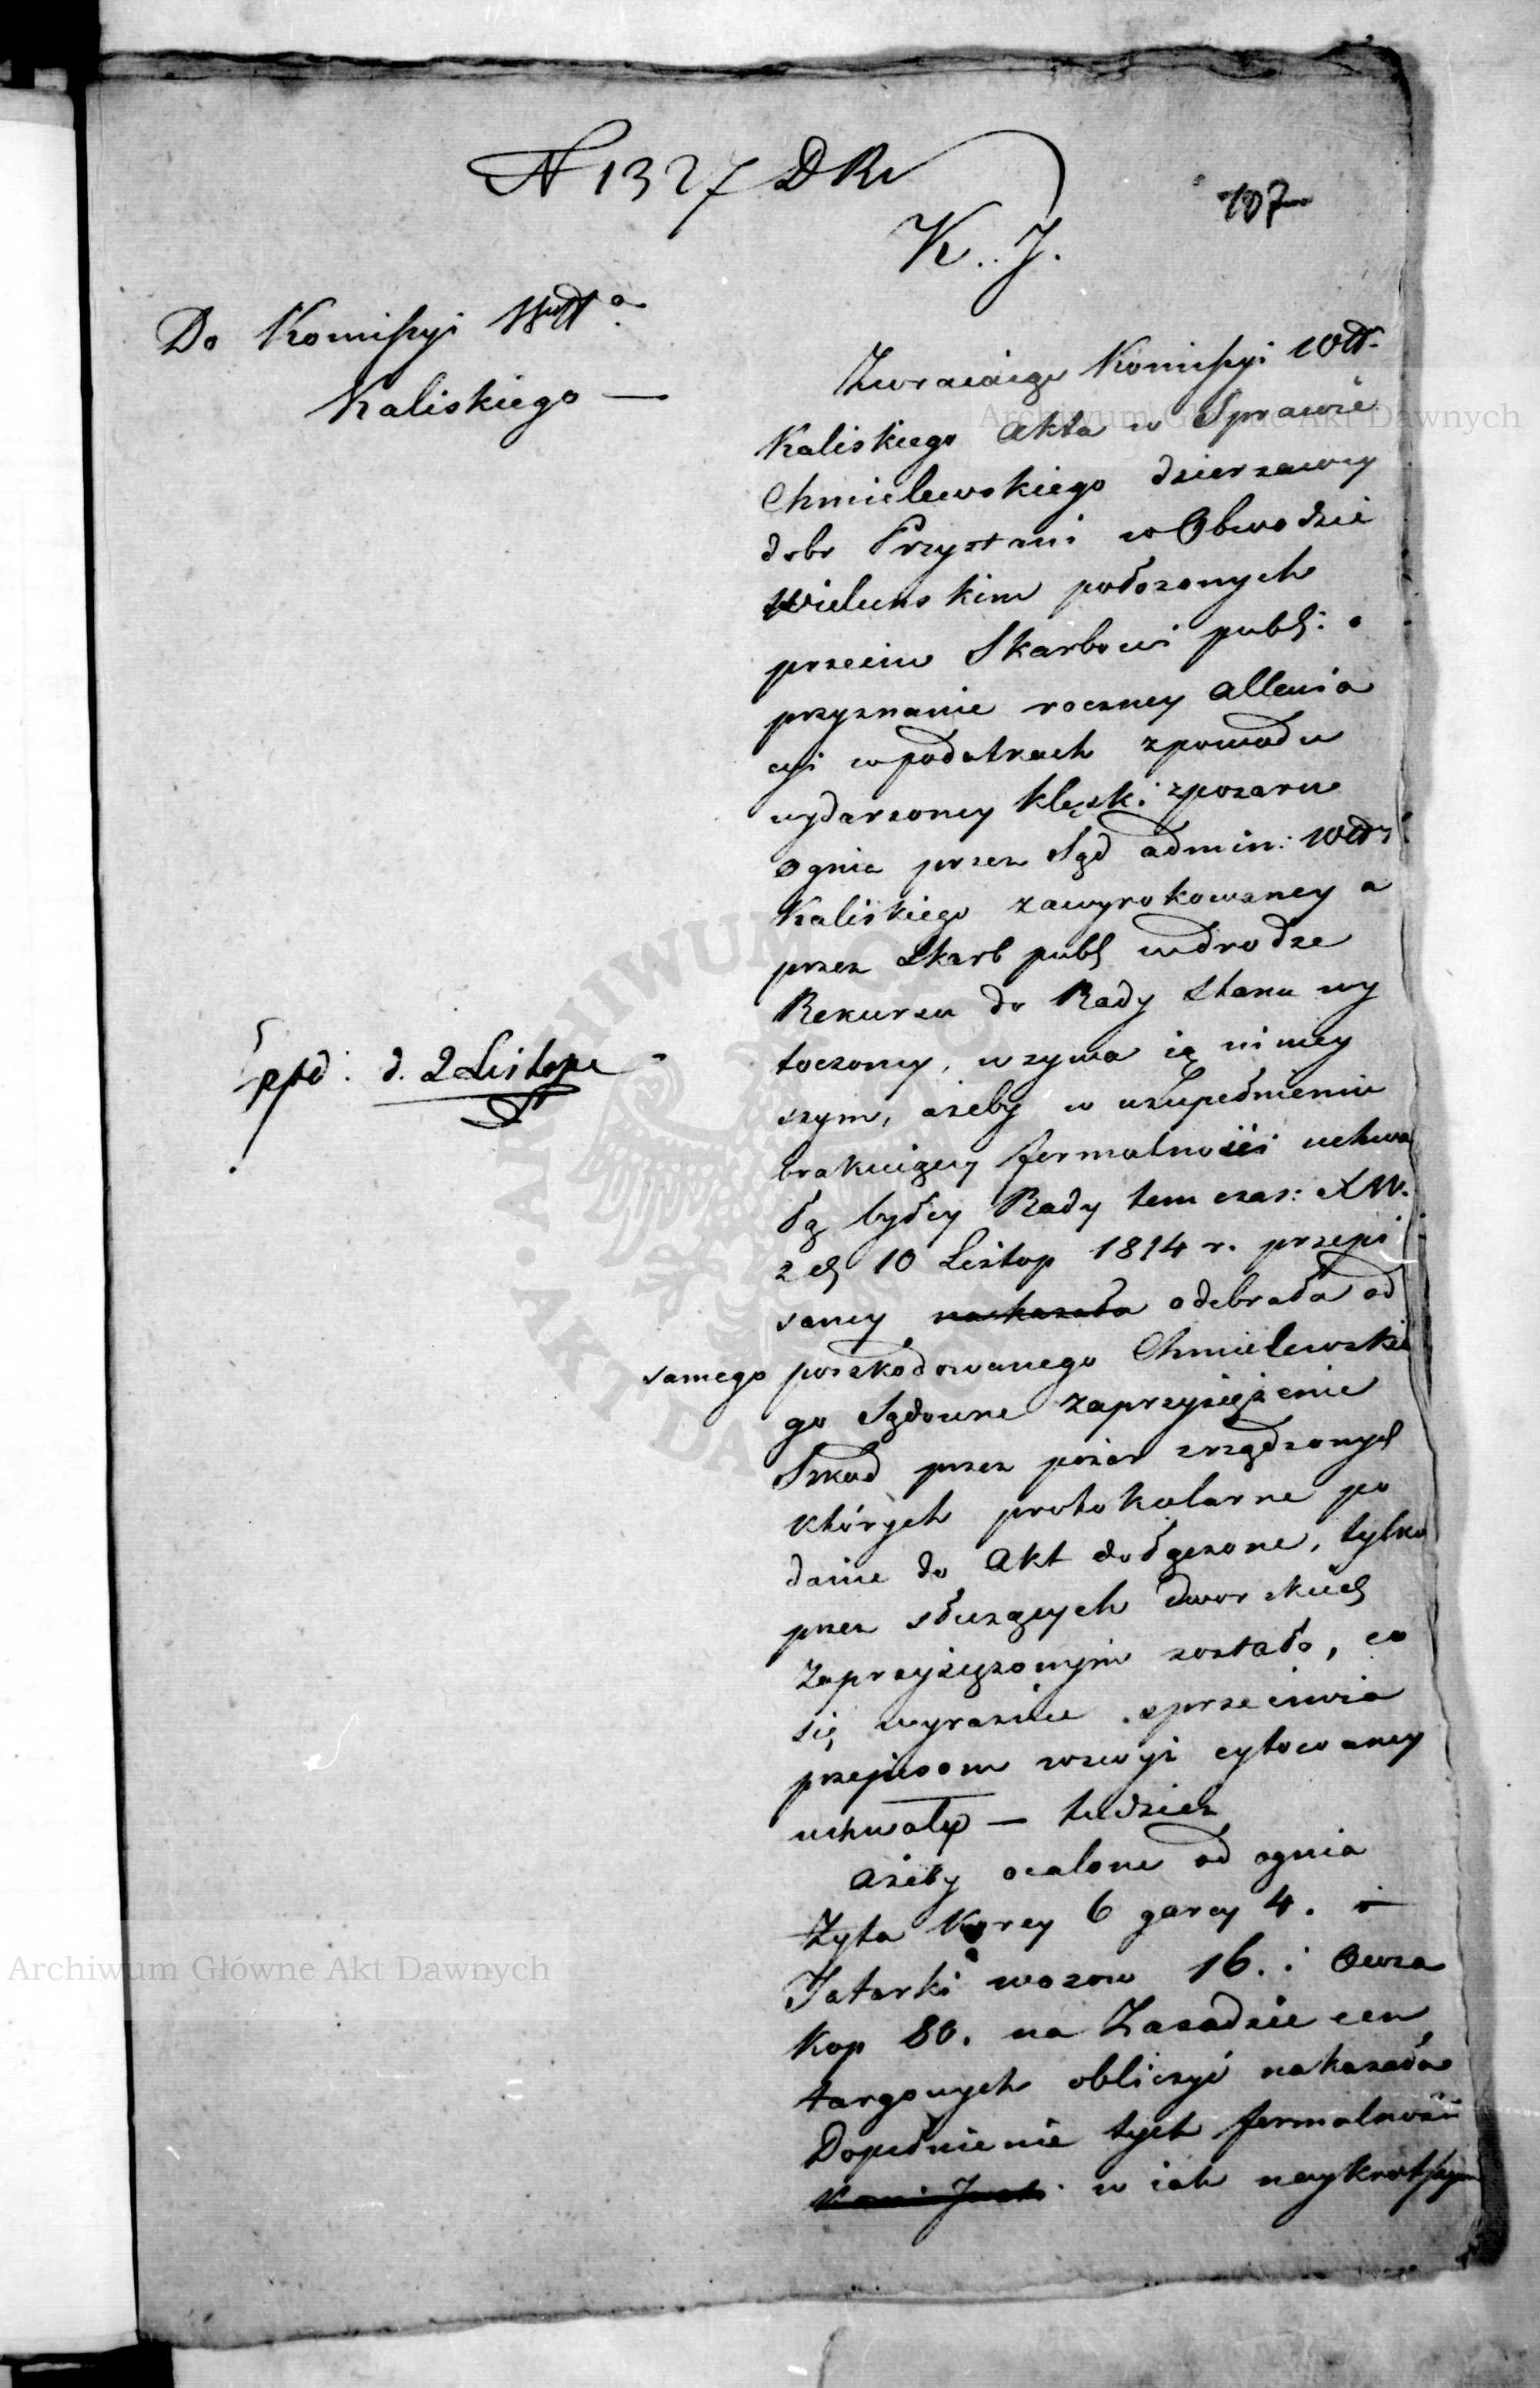 N 1327 DR
107
K.. J.
Do Komissyi Wdtt.
Kaliskiego —
Zwracaiąc Komissyi Wdt.
Kaliskiego Akta w Sprawie
Chmielewskiego dzierzawcy
dobr Przystani w Obwodzie
Wieluńskim położonych
przeciw Skarbowi publ: o
przyznanie roczney allewia
cyi w podatkach z powodu
wydarzoney klęski z pozaru
ognia przez Sąd admin: Wdz
Kaliskiego zawyrokowaney a
przez Skarb publ w drodze
Rekursu do Rady Stanu wy
toczoney, wzywa ią niniey
szym, ażeby w uzupełnieniu
brakuiącey formalności uchwa
łą byłey Rady tem czas: X W.
z d 10 Listop 1814 r. przepi
saney nakazała odebrała od
samego poszkodowanego Chmielewskie
go Sądowne zaprzysiężenie
Szkod przez pożar zrządzonych
których protokularne po
danie do Akt dołączone, tylko
przez służących dworskich
zaprzysięzonym zostało, co
się wyraznie sprzeciwia
przepisom wzwyż cytowaney
uchwały — tudziez
Ażeby ocalone od ognia
Żyta Korcy 6 garcy 4. i
Tatarki wozow 16. i Owsa
Kop 80. na Zasadzie cen
targowych obliczyć nakazała
Dopełnienie tych formalności
w iak naykrotszym
ppd: d. 2 Listopa
Archiwum Główne Akt Dawnych
Archiwum Główne Akt Dawnych